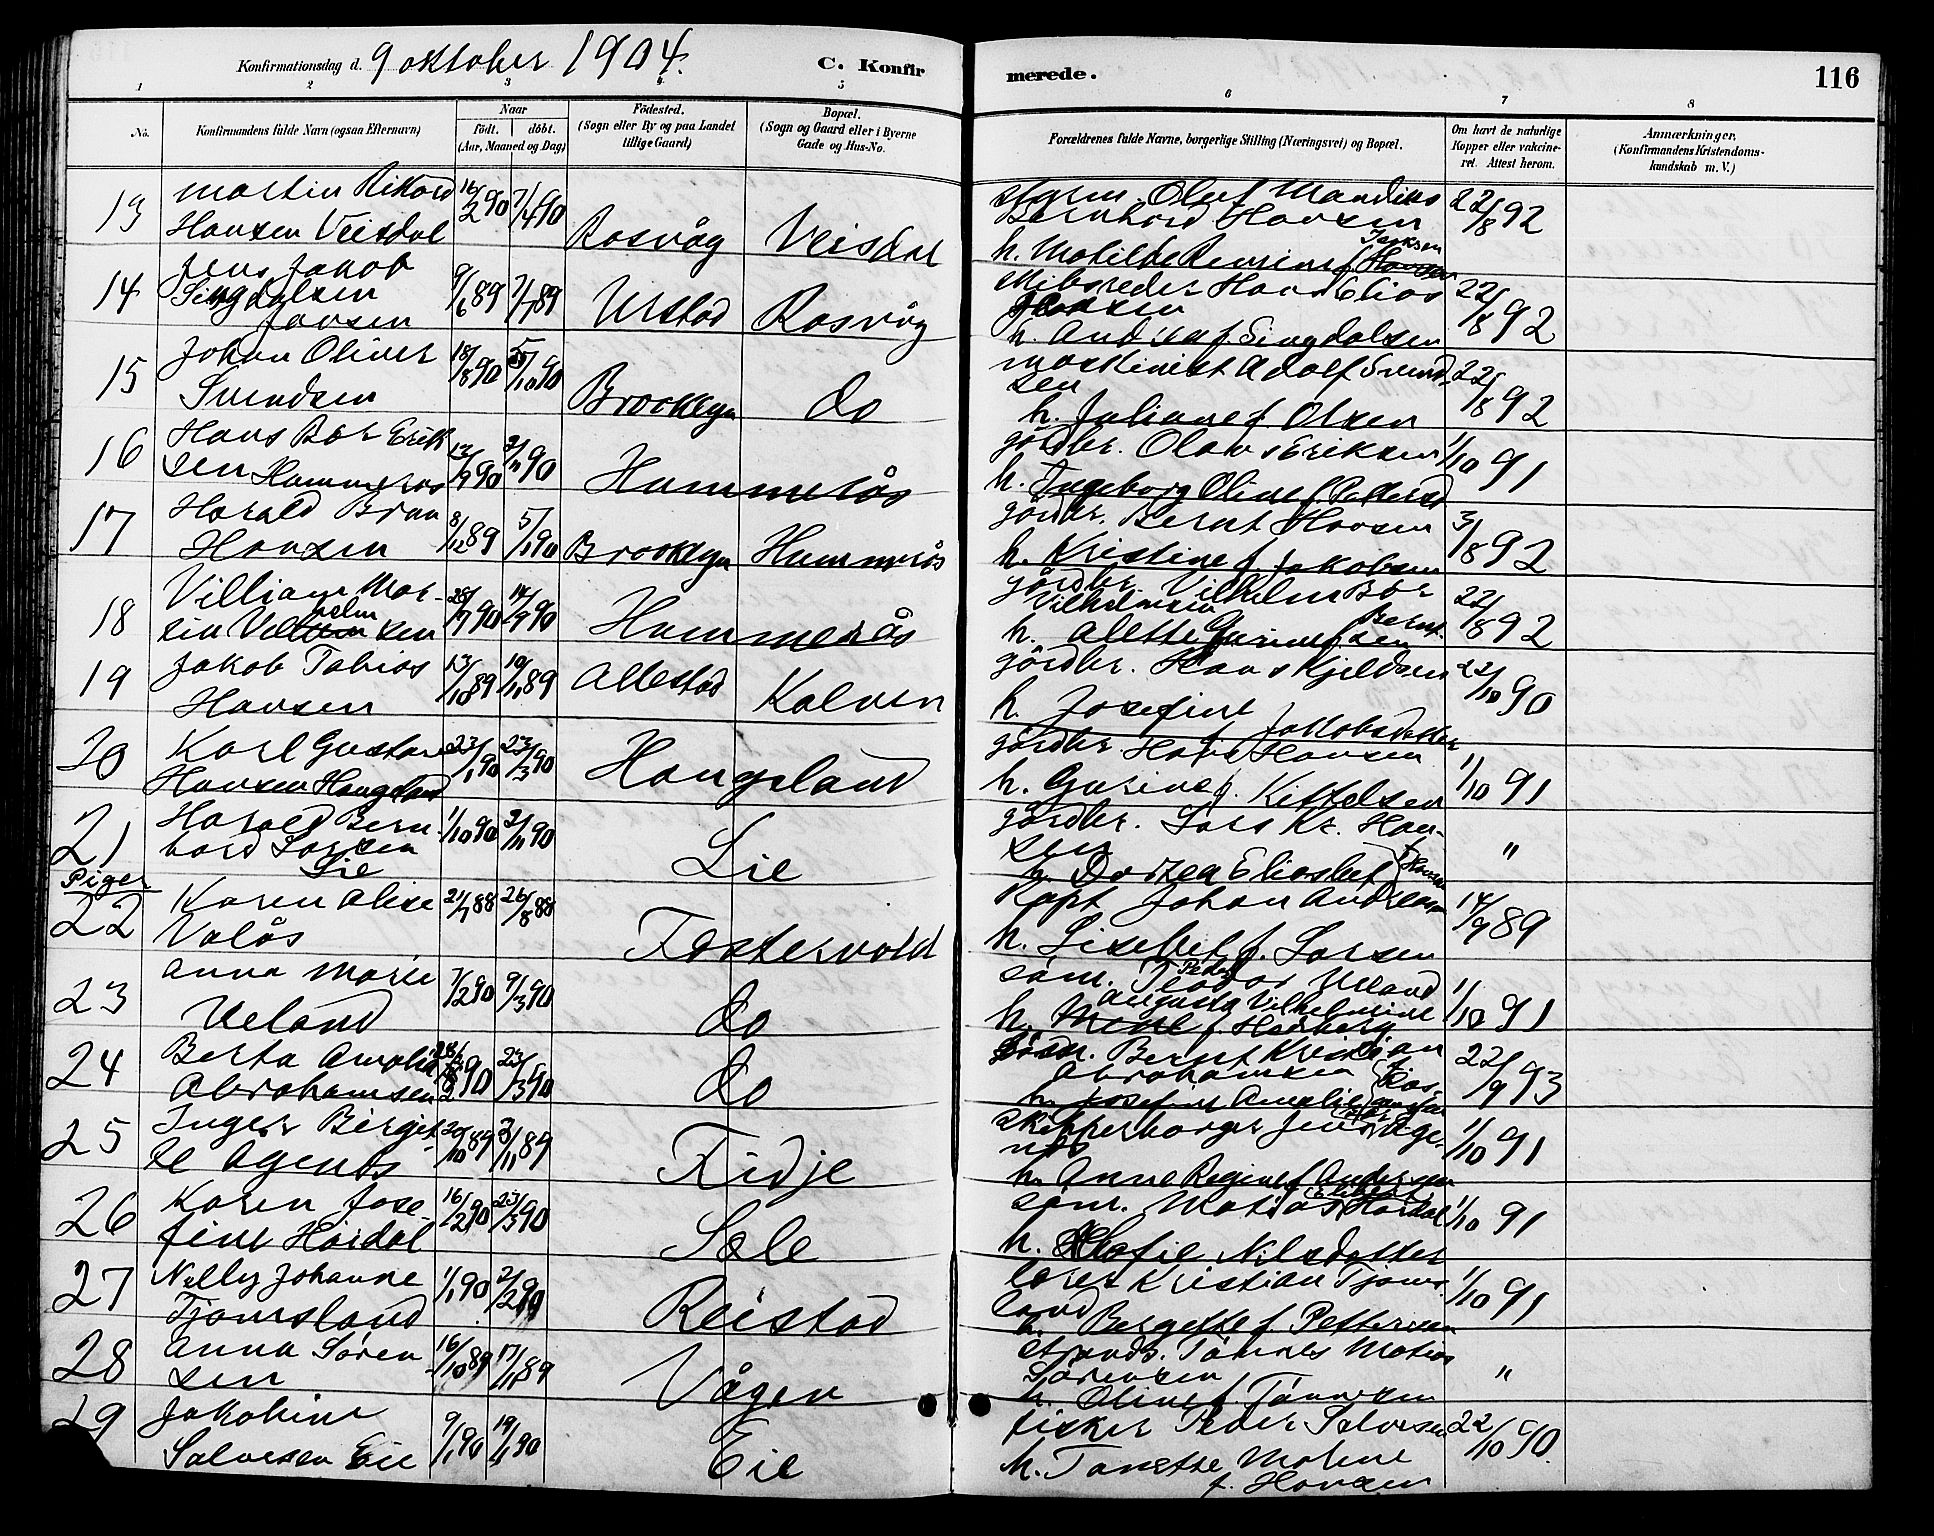 Konfirmationsdag d. 9 oktober 1904. C. Konfirmerede. 116
1 2 3 4 5 6 7 8
No. Konfirmandens fulde Navn (ogsaa Efternavn)
Naar
født. døbt.
(Aar, Maaned og Dag)
Fødested.
(Sogn eller By og paa Landet
tillige Gaard)
Bopæl.
(Sogn og Gaard eller i Byerne
Gade og Hus-No.
Forældrenes fulde Navne, borgerlige Stilling (Næringsvei) og Bopæl.
Om havt de naturlige
Kopper eller vakcine-
ret. Attest herom.
Anmærkninger.
(Konfirmandens Kristendoms-
kundskab m. V.)
13 Martin Rikard
Hansen Veisdal 16/2 90 7/4 90 Rosvåg Veisdal
Oluf Mandius
Bernhard Hansen
h. Matilde f. Hansen 22/8 92
14 Jens Jakob
Singdalsen
Jansen 9/6 89 7/7 89 Ulstad Rosvåg
Hans Elias
Jansen
h. Andrea f. Singdalsen 22/8 92
15 Johan Oliver
Svendsen 18/8 90 5/10 90 Brooklyn do
maskinist Adolf Svend-
sen
h. Juliane f. Olsen 22/8 92
16 Hans Bar Erik
sen Hammerås 13/9 90 2/11 90 Hammerås
gårdbr. Olaus Eriksen
h. Ingeborg Oline f. Pettersd 1/10 91
17 Harald Bran
Hansen 8/12 89 5/1 90 Brooklyn Hammerås
gårdbr. Bernt Hansen
h. Kristine f. Jakobsen 3/8 92
18 Villiam Mar-
sin Vilhelmsen 28/7 90 14/9 90 Hammerås
gårdbr. Vilhelm Bar
Vilhelmsen
h. Alette Gurine f. Berntsen 22/8 92
19 Jakob Tobias
Hansen 13/10 89 10/11 89 Allestad Kalven
gårdbr. Hans Kjeldsen
h. Josefine
f. Jakobsdatter 22/10 90
20 Karl Gustav
Hansen Haugland 23/1 90 23/3 90 Haugeland
gårdbr. Hans Hansen
h. Gurine f. Kittelsen 1/10 91
21 Harald Bern-
hard Larsen
Lie 1/10 90 2/11 90 Lie
gårdbr. Lars Kr. Han-
sen
h. Dortea Elisabet f. Hansen "
Piger
22 Karen Alise
Valås 21/7 88 26/8 88 Fostervold
Kapt Johan Andreas
h. Lisebet f. Larsen 14/9 89
23 Anna Marie
Ueland 7/2 90 9/3 90 do
søm. Peder Teodor Ueland
Augusta Vilhelmine
h. f. Hedberg 1/10 91
24 Berta Amalia
Abrahamsen 90 23/3 90 do
Bernt Kristian
Abrahamsen
h. Josefine Amalie 22/9 93
25 Inger Birgit
te Agenås 20/10 89 3/11 89 Fidje
skipperborger Jens Age-
nås
h. Anne Regine f. Andersen 1/10 91
26 Karen Jose-
fine Hårdal 16/2 90 23/3 90 Sæle
søm. Matias Hårdal
h. Sofie Nilsdatter 1/10 91
27 Nelly Johanne
Tjomsland 1/1 90 2/2 90 Reistad
lærer Kristian Tjoms-
land
h. Bergette f. Pettersen 1/10 91
28 Anna Søren
sen 16/10 89 17/11 89 Vågen
strands. Tønnes Matias
Sørensen
h. Oline f. Tønnesen "
29 Jakobine
Salvesen Eie 9/1 90 19/1 90 Eie
fisker Peder Salvesen
h. Tanette Maline
f. Hansen 22/10 90.